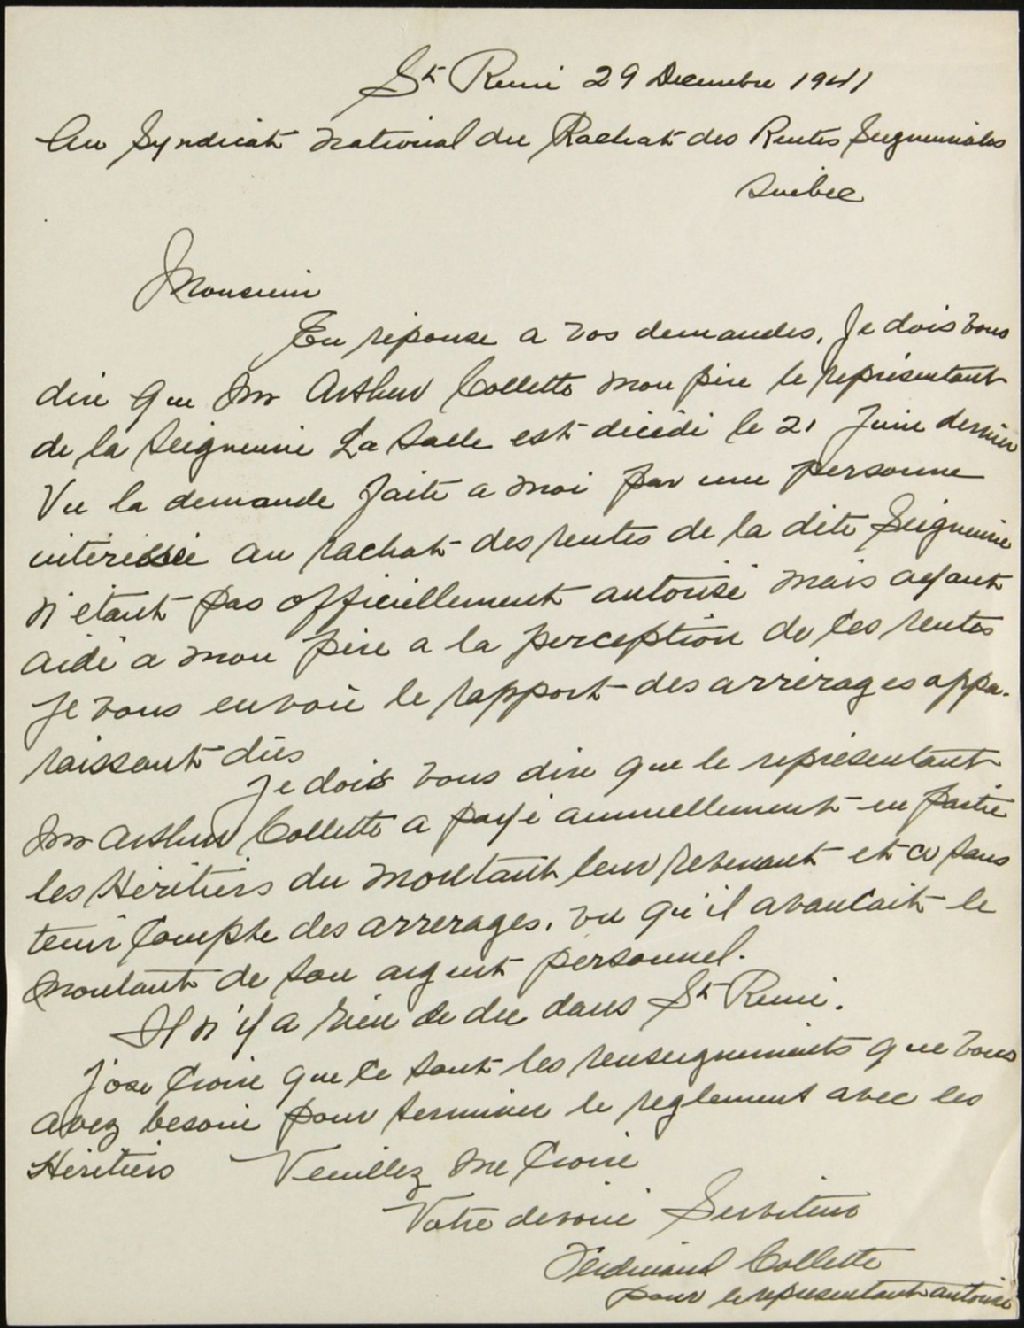 St Remi 29 Decembre 1941
Au Syndicat National du Rachat des Rentes Seigneuriales
Quebec
Monsieur
En réponse a vos demandes, Je dois vous
dire que Mr Arthur Collette mon père le représentant
de la Seigneurie La Salle est décédé le 21 Juin dernier
Vu la demande faite a moi par une personne
intéressée au rachat des rentes de la dite Seigneurie
n'étant pas officiellement autorisé mais ayant
aidé a mon père a la perception de ces rentes
Je vous envoie le rapport des arrérages appa-
raissant dûs
Je dois vous dire que le représentant
Mr Arthur Collette a payé annuellement en partie
les Héritiers du montant leur revenant et ce sans
tenir compte des arrerages, vu qu'il avancait le
montant de son argent personnel.
Il n'y a rien de du dans St Remi.
J'ose croire que ce sont les renseignements que vous
avez besoin pour terminer le reglement avec les
Héritiers Veuillez me Croire
Votre devoué Serviteur
Ferdinand Collette
pour le representant autorisé